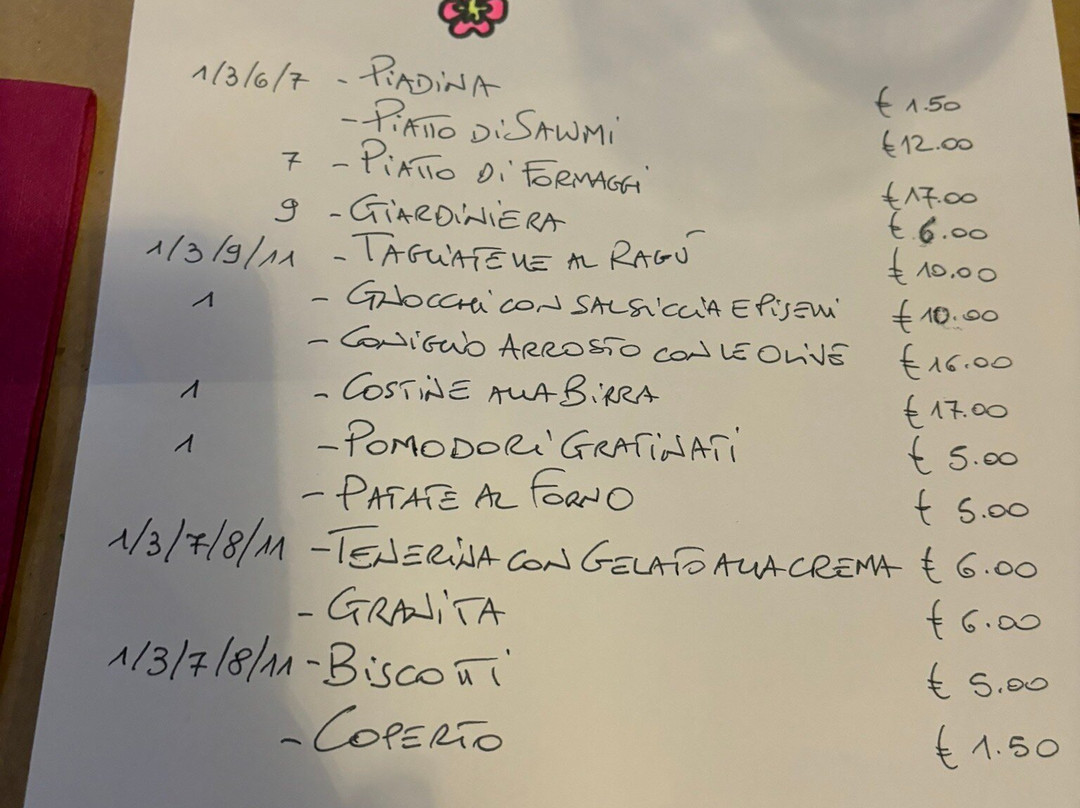 1/3/6/7 - PIADINA € 1.50
- PIATTO DI SALUMI € 12.00
7 - PIATTO DI FORMAGGI € 17.00
9 - GIARDINIERA € 6.00
1/3/9/11 - TAGLIATELLE AL RAGÙ € 10.00
1 - GNOCCHI CON SALSICCIA E PISELLI € 10.00
- CONIGLIO ARROSTO CON LE OLIVE € 16.00
1 - COSTINE ALLA BIRRA € 17.00
1 - POMODORI GRATINATI € 5.00
- PATATE AL FORNO € 5.00
1/3/7/8/11 - TENERINA CON GELATO ALLA CREMA € 6.00
- GRANITA € 6.00
1/3/7/8/11 - BISCOTTI € 5.00
- COPERTO € 1.50